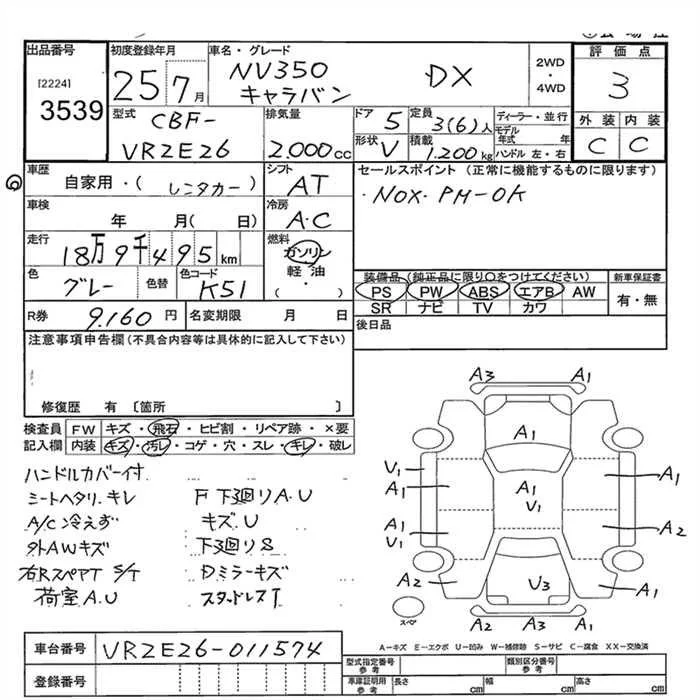 出品番号
[2224]
3539
初度登録年月
25 7月
車名・グレード
NV350
キャラバン
DX
2WD
・
4WD
評価点
3
外装 内装
C C
型式
CBF-
VR2E26
排気量
2.000cc
ドア 5
形状 V
定員 3(6)人
積載 1.200kg
ディーラー・並行
モデル
年式 年
ハンドル 左・右
車歴
自家用・(レンタカー)
シフト
AT
セールスポイント (正常に機能するものに限ります)
・NOX・PM-OK
車検
年 月(日)
冷房
A・C
走行
18万9千495km
燃料
ガソリン
軽油
( ・ )
色
グレー
色替
色コード
K51
装備品(純正品に限り○をつけてください)
PS PW ABS エアB AW
SR ナビ TV カワ
新車保証書
有・無
R券 9.160円
名変期限 月 日
後日品
注意事項申告欄(不具合内容等は具体的に記入して下さい)
修復歴 有〔箇所 〕
検査員 FW キズ・飛石・ヒビ割・リペア跡・×要
記入欄 内装 キズ・汚レ・コゲ・穴・スレ・キレ・破レ
ハンドルカバー付
シートヘタリ.キレ
A/C冷えず
外AWキズ
右RスペアT S/T
荷室A.U
F下廻りA.U
キズ.U
下廻りS
Dミラーキズ
スタッドレスT
A3 A1
A1
U1
A1
A1
U1
A1
A1
U1
A2
A2
U3
A1
A2 A3 A1
スペア
A－キズ E－エクボ U－凹み W－補修跡 S－サビ C－腐食 XX－交換済
車台番号 VR2E26-011574
登録番号
型式指定番号
参考
類別区分番号
参考
車庫証明用
参考
長さ cm 幅 cm 高さ cm